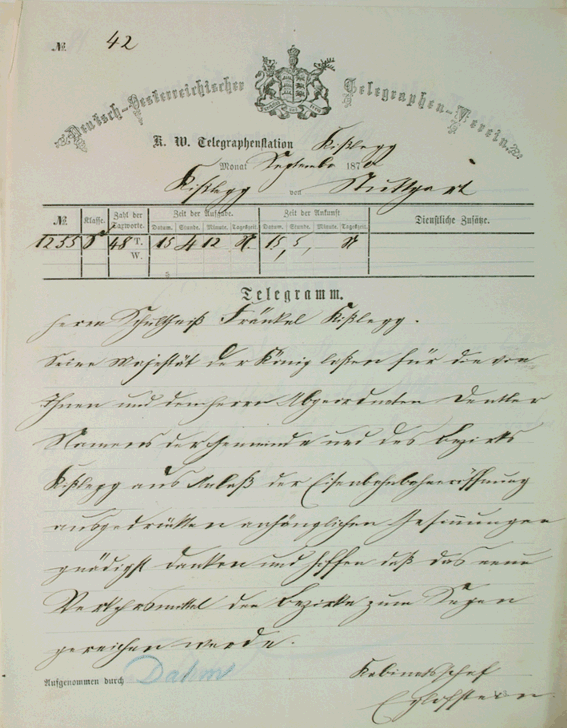 № 42
Deutsch-Oesterreichischer Telegraphen-Verein.
K. W. Telegraphenstation Kißlegg
Monat September 187
Kißlegg von Stuttgart
№ Klasse. Zahl der Taxworte. Zeit der Aufgabe. Zeit der Ankunft Dienstliche Zusätze.
Datum. Stunde. Minute. Tageszeit. Datum. Stunde. Minute. Tageszeit.
1255 S 48 T. 15 4 12 N. 15 5 N
W.
Telegramm.
Herrn Schultheiß Fränkel Kißlegg.
Seine Majestät der König laßen für die von
Ihnen und dem Herrn Abgeordneten Dentler
Namens der Gemeinde und des Bezirks
Kißlegg aus Anlaß der Eisenbahneröffnung
ausgedrükten anhänglichen Gesinnungen
gnädigst danken und hoffen daß das neue
Verkehrsmittel dem Bezirke zum Segen
gereichen werde.
Kabinetschef
Egloffstein.
Aufgenommen durch